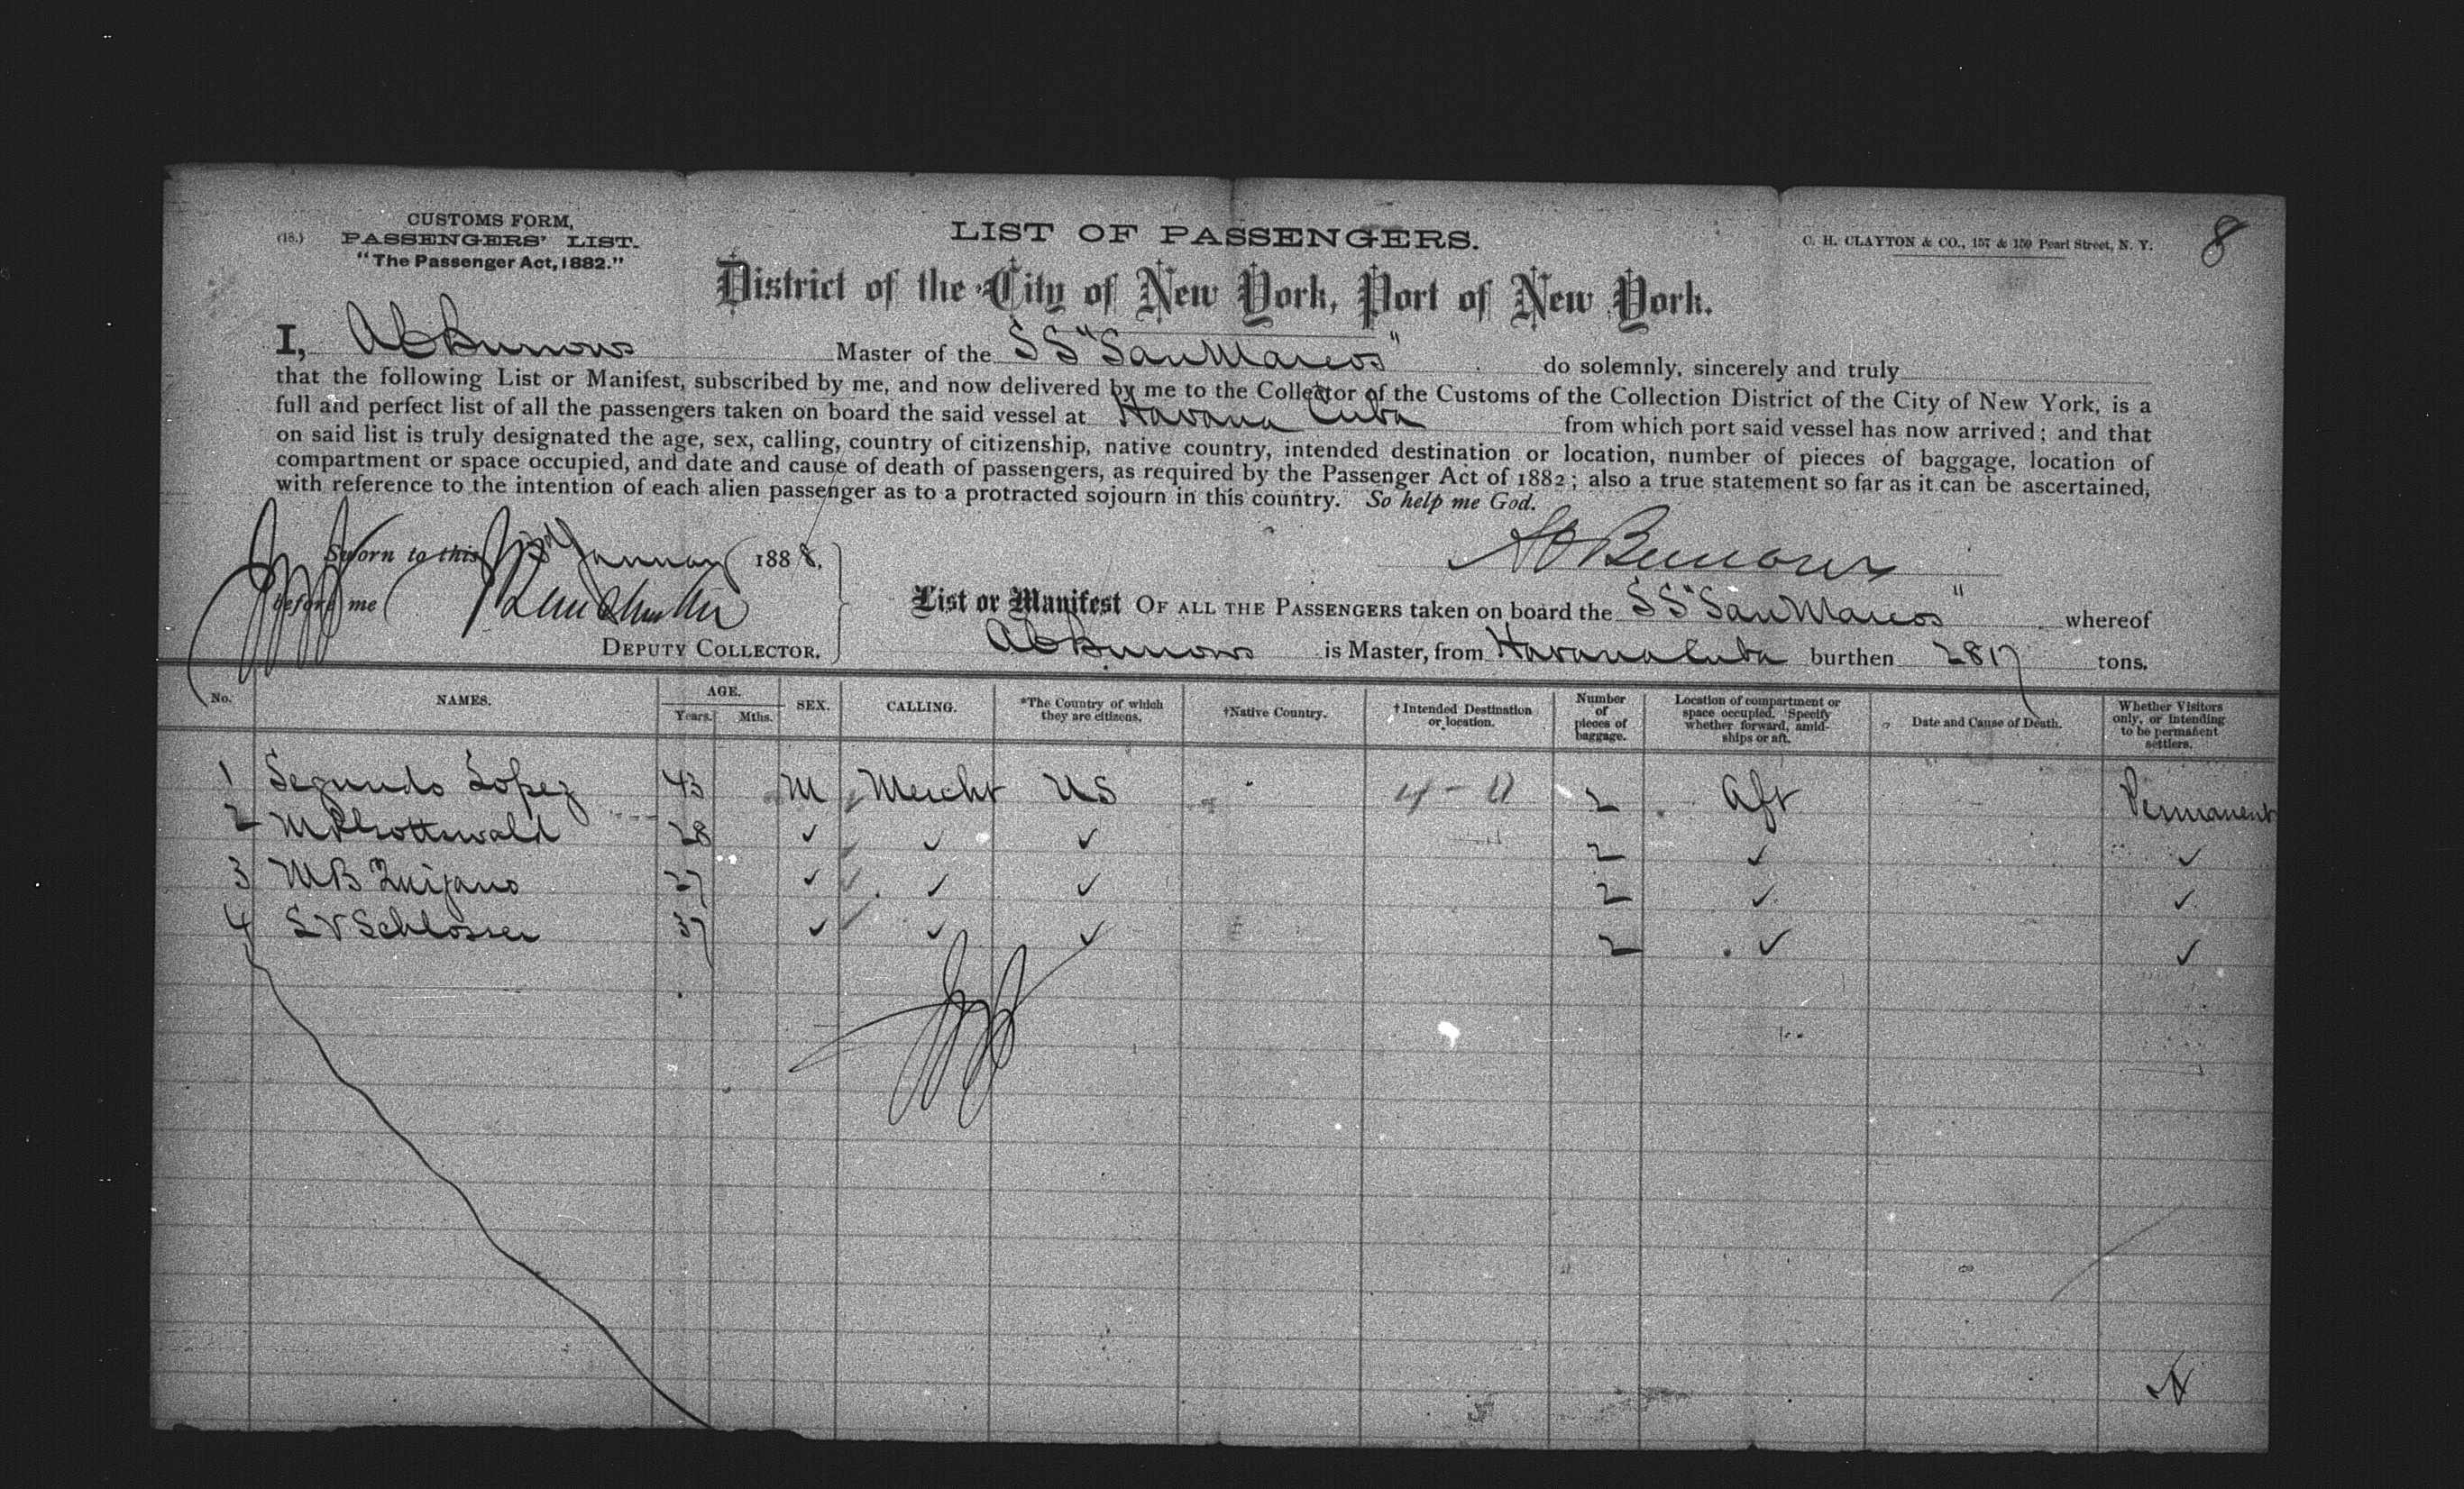 CUSTOMS FORM,
(18.) PASSENGERS' LIST.
"The Passenger Act, 1882."
LIST OF PASSENGERS.
C. H. CLAYTON & CO., 157 & 159 Pearl Street, N. Y.
8
District of the City of New York, Port of New York.
I, Master of the SS "San Marcos" do solemnly, sincerely and truly
that the following List or Manifest, subscribed by me, and now delivered by me to the Collector of the Customs of the Collection District of the City of New York, is a
full and perfect list of all the passengers taken on board the said vessel at Havana Cuba from which port said vessel has now arrived; and that
on said list is truly designated the age, sex, calling, country of citizenship, native country, intended destination or location, number of pieces of baggage, location of
compartment or space occupied, and date and cause of death of passengers, as required by the Passenger Act of 1882; also a true statement so far as it can be ascertained,
with reference to the intention of each alien passenger as to a protracted sojourn in this country. So help me God.
Sworn to this January 1888,
before me
DEPUTY COLLECTOR.
List or Manifest OF ALL THE PASSENGERS taken on board the SS "San Marcos" whereof
is Master, from Havana Cuba burthen 2817 tons.
No. NAMES. AGE. Years. Mths. SEX. CALLING. *The Country of which they are citizens. †Native Country. †Intended Destination or location. Number of pieces of baggage. Location of compartment or space occupied. Specify whether forward, amidships or aft. Date and Cause of Death. Whether Visitors only, or intending to be permanent settlers.
1 Segundo Lopez 43 M Mercht US 2 Aft Permanent
2 28 ✓ ✓ ✓ 2 ✓ ✓
3 M B Quijano 27 ✓ ✓ ✓ 2 ✓ ✓
4 S V Schlosser 37 ✓ ✓ ✓ 2 ✓ ✓